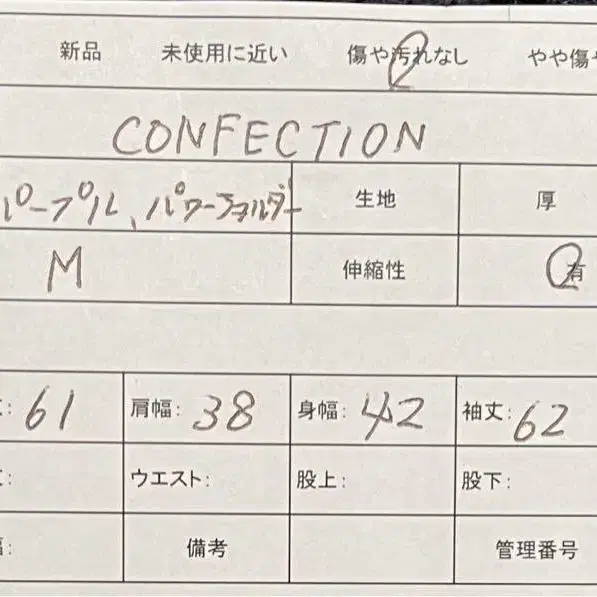 新品 未使用に近い 傷や汚れなし やや傷や
CONFECTION
パープル、パワーショルダー 生地 厚
M 伸縮性 有
丈: 61 肩幅: 38 身幅: 42 袖丈: 62
ウエスト: 股上: 股下:
備考 管理番号